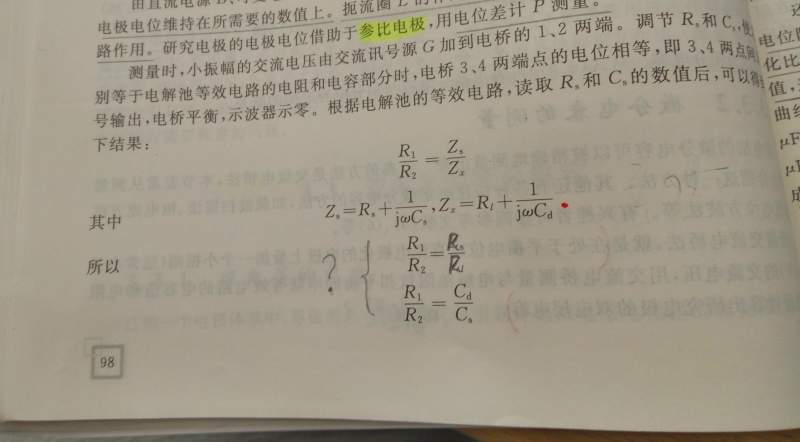 电极电位维持在所需要的数值上。扼流圈 L
路作用。研究电极的电极电位借助于参比电极,用电位差计 P 测量。
测量时,小振幅的交流电压由交流讯号源 G 加到电桥的 1、2 两端。调节 Rₛ和 Cₛ,使
别等于电解池等效电路的电阻和电容部分时,电桥 3、4 两端点的电位相等,即 3、4 两点间
号输出,电桥平衡,示波器示零。根据电解池的等效电路,读取 Rₛ 和 Cₛ的数值后,可以得
下结果:
R₁/R₂ = Zₛ/Zₓ
其中 Zₛ=Rₛ+1/(jωCₛ),Zₓ=Rₗ+1/(jωC_d)
所以 ? { R₁/R₂=Rₛ/Rₗ
R₁/R₂=C_d/Cₛ
98
电位
化比
值,
曲线
μF